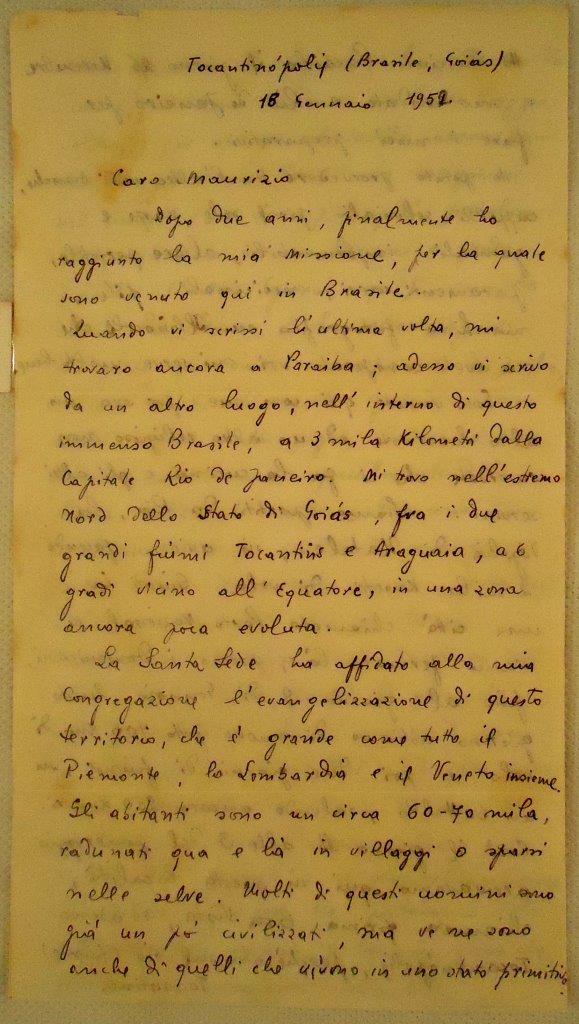 Tocantinópolis (Brasile, Goiás)
18 Gennaio 1952.
Caro Maurizio
Dopo due anni, finalmente ho
raggiunto la mia Missione, per la quale
sono venuto qui in Brasile.
Quando vi scrissi l'ultima volta, mi
trovavo ancora a Paraiba; adesso vi scrivo
da un altro luogo, nell'interno di questo
immenso Brasile, a 3 mila Kilometri dalla
Capitale Rio de Janeiro. Mi trovo nell'estremo
Nord dello Stato di Goiás, fra i due
grandi fiumi Tocantins e Araguaia, a 6
gradi vicino all'Equatore, in una zona
ancora poca evoluta.
La Santa Sede ha affidato alla mia
Congregazione l'evangelizzazione di questo
territorio, che è grande come tutto il
Piemonte, la Lombardia e il Veneto insieme.
Gli abitanti sono un circa 60-70 mila,
radunati qua e là in villaggi o sparsi
nelle selve. Molti di questi uomini sono
già un pò civilizzati, ma ve ne sono
anche di quelli che vivono in uno stato primitivo